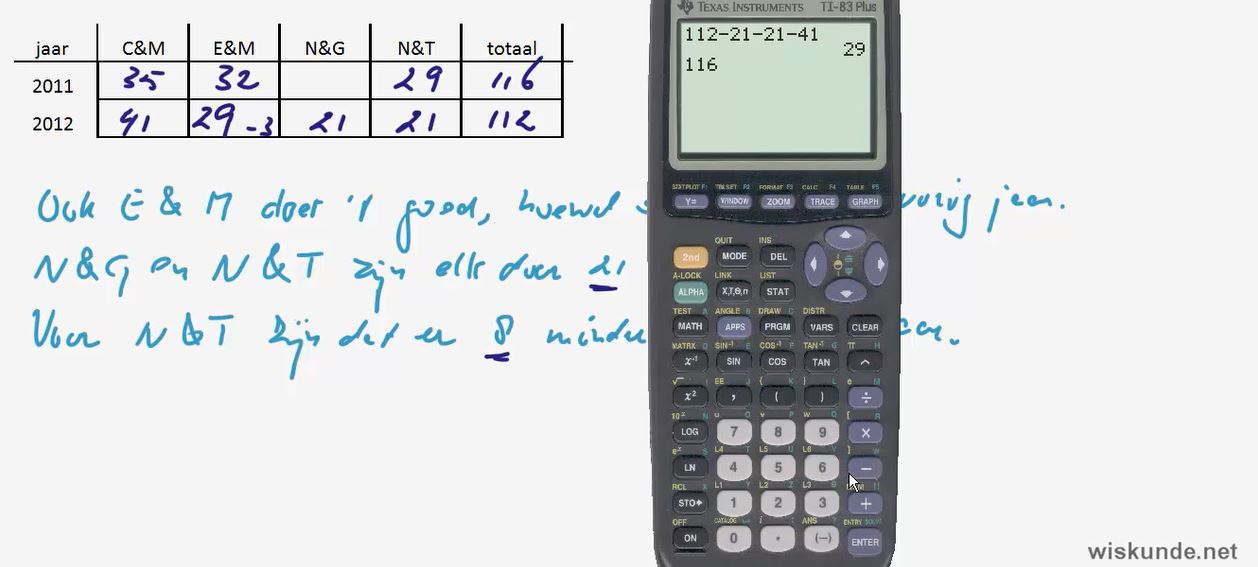 jaar C&M E&M N&G N&T totaal
2011 35 32 29 116
2012 41 29 -3 21 21 112
Ook E & M doet 't goed, hoewel
vorig jaar.
N&G en N&T zijn elk door 21
Voor N&T zijn dat er 8 minder
TEXAS INSTRUMENTS TI-83 Plus
112-21-21-41
29
116
STAT PLOT F1 TBLSET F2 FORMAT F3 CALC F4 TABLE F5
Y= WINDOW ZOOM TRACE GRAPH
QUIT INS
2nd MODE DEL
A-LOCK LINK LIST
ALPHA X,T,Θ,n STAT
TEST A ANGLE B DRAW C DISTR
MATH APPS PRGM VARS CLEAR
MATRX D SIN⁻¹ E COS⁻¹ F TAN⁻¹ G π H
x⁻¹ SIN COS TAN ^
√ I EE J { K } L e M
x² , ( ) ÷
10ˣ N u O v P w Q [ R
LOG 7 8 9 ×
eˣ S L4 T L5 U L6 V ] W
LN 4 5 6 −
RCL X L1 Y L2 Z L3 θ
STO➔ 1 2 3 +
OFF CATALOG i : ANS ? ENTRY SOLVE
ON 0 . (−) ENTER
wiskunde.net